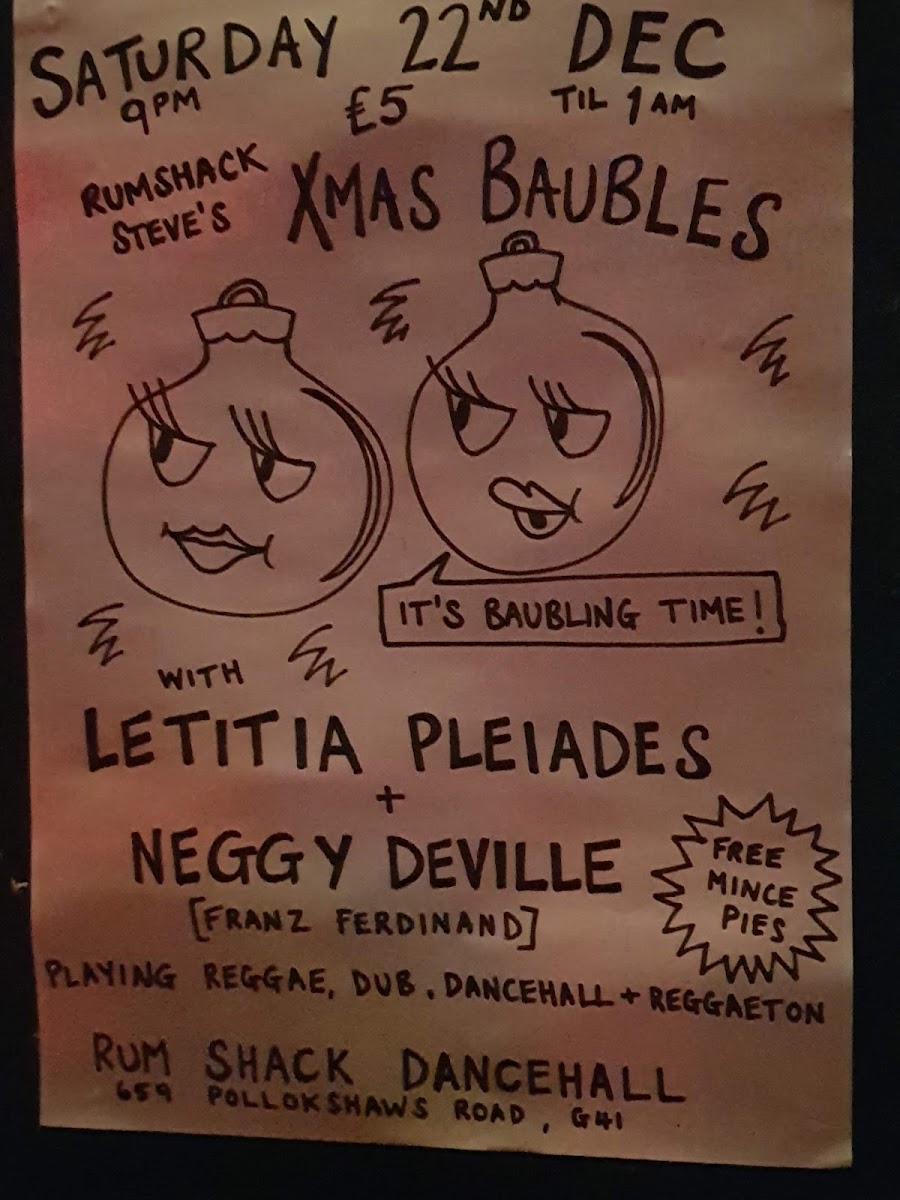 SATURDAY 22ND DEC
9PM £5 TIL 1AM
RUMSHACK STEVE'S
XMAS BAUBLES
IT'S BAUBLING TIME!
WITH
LETITIA PLEIADES
+
NEGGY DEVILLE
[FRANZ FERDINAND]
FREE
MINCE
PIES
PLAYING REGGAE, DUB, DANCEHALL + REGGAETON
RUM SHACK DANCEHALL
659 POLLOKSHAWS ROAD, G41